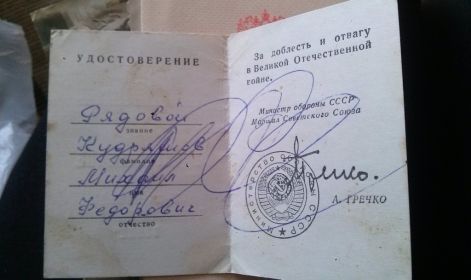 УДОСТОВЕРЕНИЕ
Рядовой
звание
Кудряшов
фамилия
Михаил
имя
Федорович
отчество
За доблесть и отвагу
в Великой Отечественной
войне.
Министр обороны СССР
Маршал Советского Союза
А. ГРЕЧКО
Министерство
СССР